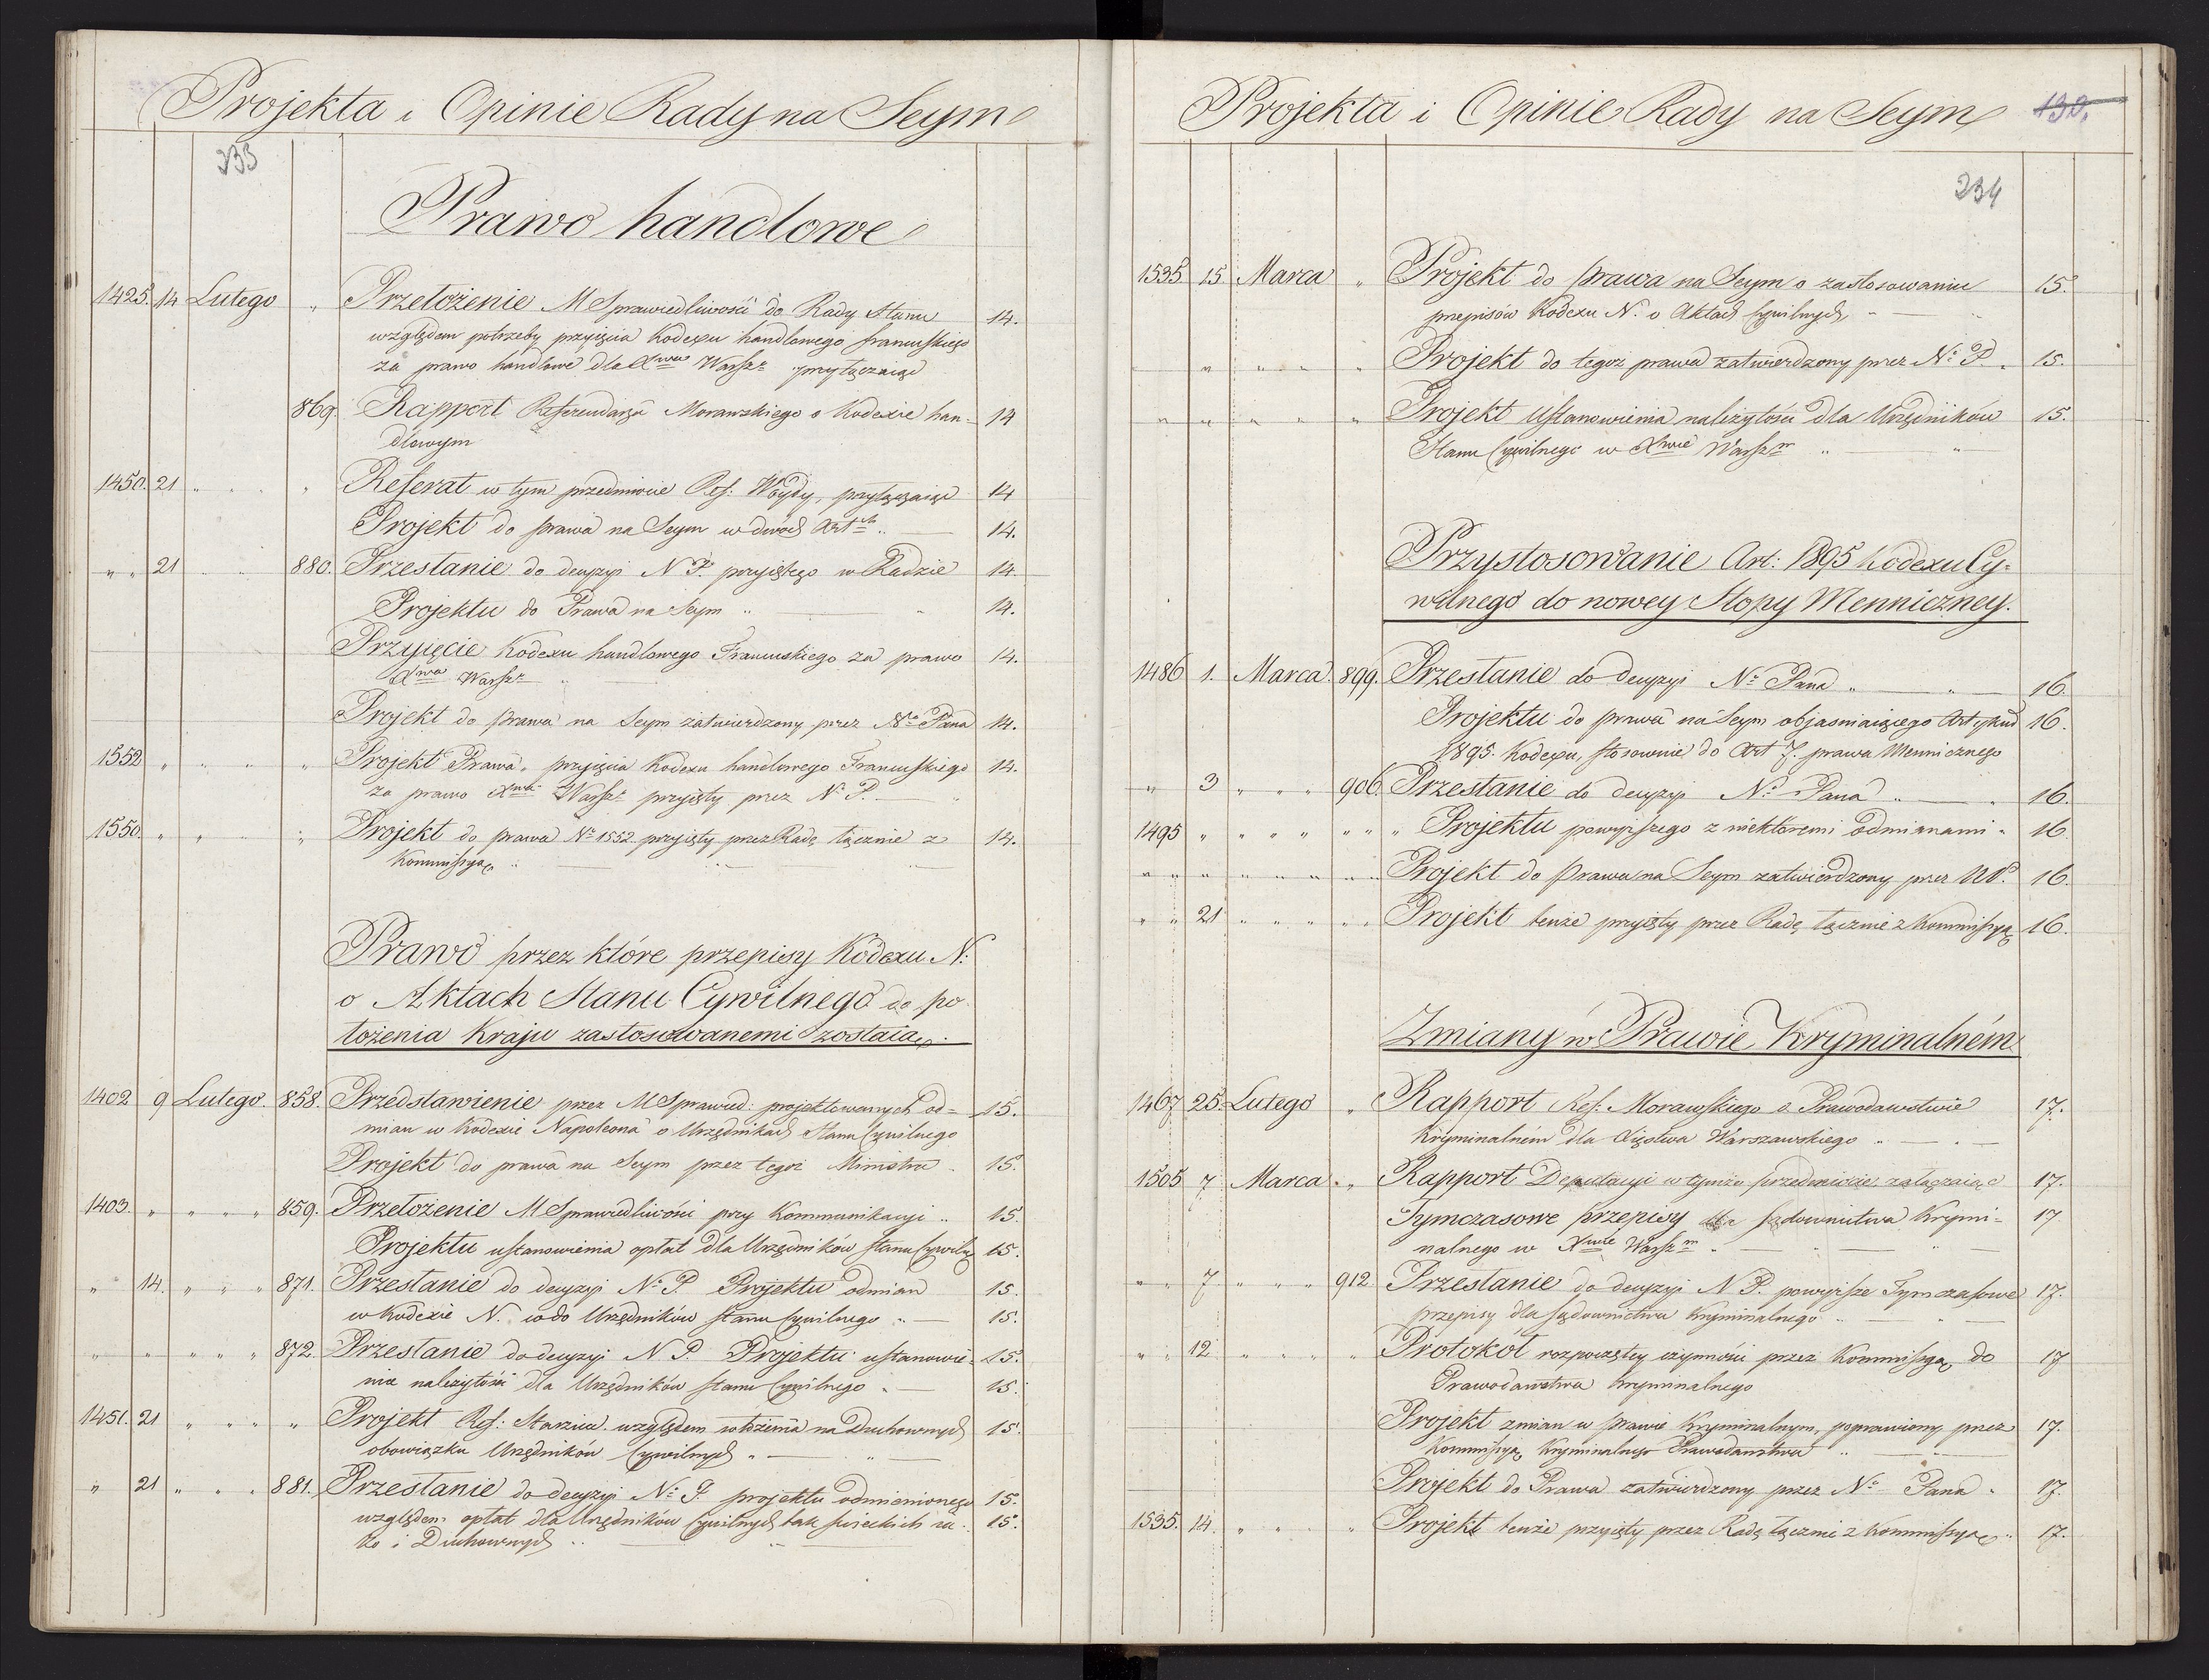 Projekta i Opinie Rady na Seym
233
Prawo handlowe
1425. 14 Lutego „ Przełożenie M Sprawiedliwości do Rady Stanu 14.
względem potrzeby przyięcia Kodexu handlowego francuskiego
za prawo handlowe dla Xwa Warszo przyłączaiąc
869. Rapport Referendarza Morawskiego o Kodexie han- 14
dlowym
1450. 21 „ „ „ Referat w tym przedmiocie Ref: Woydy, przyłączaiąc 14
Projekt do prawa na Seym w dwóch Art „ 14.
„ „ 21 880. Przesłanie do decyzyi N P. przyiętego w Radzie 14.
Projektu do Prawa na Seym „ 14.
Przyięcie Kodexu handlowego Francuskiego za prawo 14.
Xwa Warszo „
Projekt do prawa na Seym zatwierdzony przez No Pana 14.
1552 „ „ „ „ Projekt Prawa, przyięcia Kodexu handlowego Francuskiego 14.
za prawo Xwa Warszo przyięty przez N. P. „
1550. „ „ „ Projekt do prawa No 1552 przyięty przez Radę łącznie z 14.
Kommissyą „
Prawo przez które przepisy Kodexu N:
o Aktach Stanu Cywilnego do po-
łożenia Kraju zastosowanemi zostaią.
1402 9 Lutego. 858. Przedstawienie przez M Sprawied: projektowanych od= 15.
mian w Kodexie Napoleona o Urzędnikach Stanu Cywilnego
Projekt do prawa na Seym przez tegoż Ministra 15.
1403. „ „ „ „ 859. Przełożenie M Sprawiedliwości przy Kommunikacyi „ 15.
Projektu ustanowienia opłat dla Urzędników stanu Cywiln 15.
„ 14. „ „ „ 871. Przesłanie do decyzyi No P. Projektu odmian 15.
w Kodexie N. co do Urzędników stanu Cywilnego „ 15.
„ „ „ „ „ 872. Przesłanie do decyzyi N P. Projektu ustanowie- 15.
nia należytości dla Urzędników stanu Cywilnego „ 15.
1451. 21 „ „ „ „ Projekt Ref: względem włożenia na Duchownych 15.
obowiązku Urzędników Cywilnych „
„ 21 „ „ „ 881. Przesłanie do decyzyi No P. projektu odmienionego 15.
względem opłat dla Urzędników Cywilnych tak świeckich ia- 15.
ko i Duchownych „
Projekta i Opinie Rady na Seym 130.
234
1535 15. Marca „ Projekt do prawa na Seym o zastosowaniu 15.
przepisów Kodexu N. o Aktach Cywilnych, „
„ „ „ „ Projekt do tegoż prawa zatwierdzony przez No P. „ 15.
„ „ „ „ „ Projekt Ustanowienia należytości dla Urzędników 15.
Stanu Cywilnego w Xwie Warszm „ „
Przystosowanie Art: 1895 Kodexu Cy-
wilnego do nowey Stopy Menniczney.
1486 1. Marca. 899. Przesłanie do decyzyi No Pana „ „ 16.
Projektu do prawa na Seym objasniaiącego Artykuł 16.
1895. Kodexu, stosownie do Art 7. prawa Mennicznego
„ 3 „ „ „ 906. Przesłanie do decyzyi No Pana „ „ 16.
1495 „ „ „ „ „ „ „ Projektu powyższego z niektóremi odmianami „ 16
„ „ „ „ „ „ „ „ Projekt do Prawa na Seym zatwierdzony przez NP. 16.
„ „ 21 „ „ „ „ „ Projekt tenże przyięty przez Radę łącznie z Kommissyą 16.
Zmiany w Prawie Kryminalném
1467 25. Lutego „ Rapport Ref: Morawskiego o Prawodawstwie 17.
Kryminalném dla Xięstwa Warszawskiego „
1505 7 Marca. „ Rapport Deputacyi w tymże przedmiocie, załączaiąc 17.
Tymczasowe przepisy dla sądownictwa Krymi= 17
nalnego w Xwie Warszm „
„ „ 7 „ „ „ 912. Przesłanie do decyzyi N P. powyższe Tymczasowe 17.
przepisy dla sądownictwa Kryminalnego „
„ „ 12 „ „ „ „ Protokół rozpoczętey czynności przez Kommissyą do 17
Prawodawstwa Kryminalnego
Projekt zmian w prawie Kryminalnym, poprawiony przez 17.
Kommissyą Kryminalnego Prawodawstwa „
Projekt do Prawa zatwierdzony przez No Pana „ 17.
1535. 14. „ „ „ „ Projekt tenże przyięty przez Radę łącznie z Kommissyą „ 17.